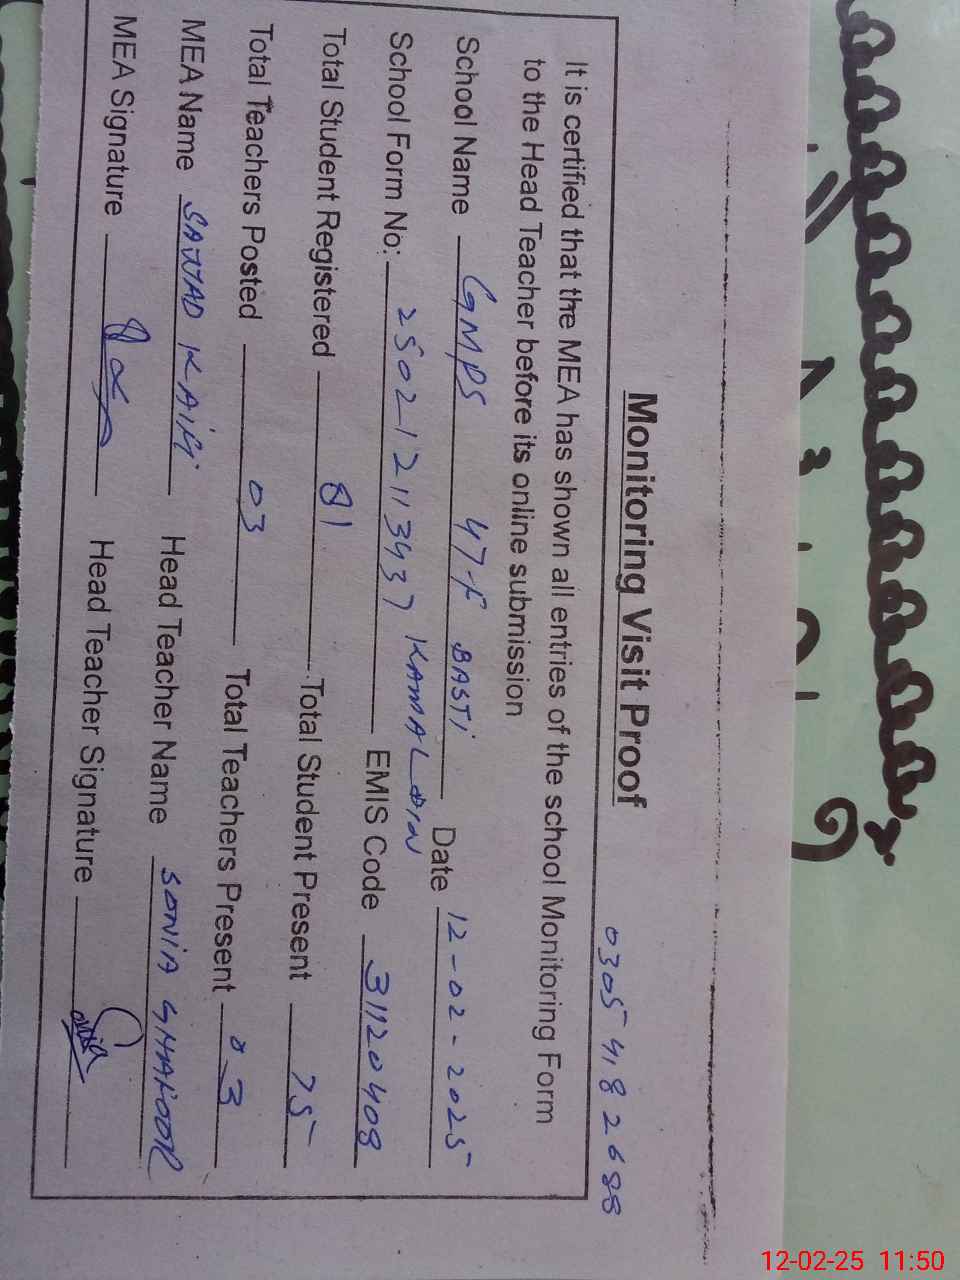 0305 4182688
Monitoring Visit Proof
It is certified that the MEA has shown all entries of the school Monitoring Form
to the Head Teacher before its online submission
School Name GMPS 47-F BASTI Date 12-02-2025
KAMAL DIN
School Form No: 250212113437 EMIS Code 31120408
Total Student Registered 81 Total Student Present 75
Total Teachers Posted 03 Total Teachers Present 03
MEA Name SAJJAD Head Teacher Name SONIA SHAKOOR
MEA Signature Head Teacher Signature
12-02-25 11:50